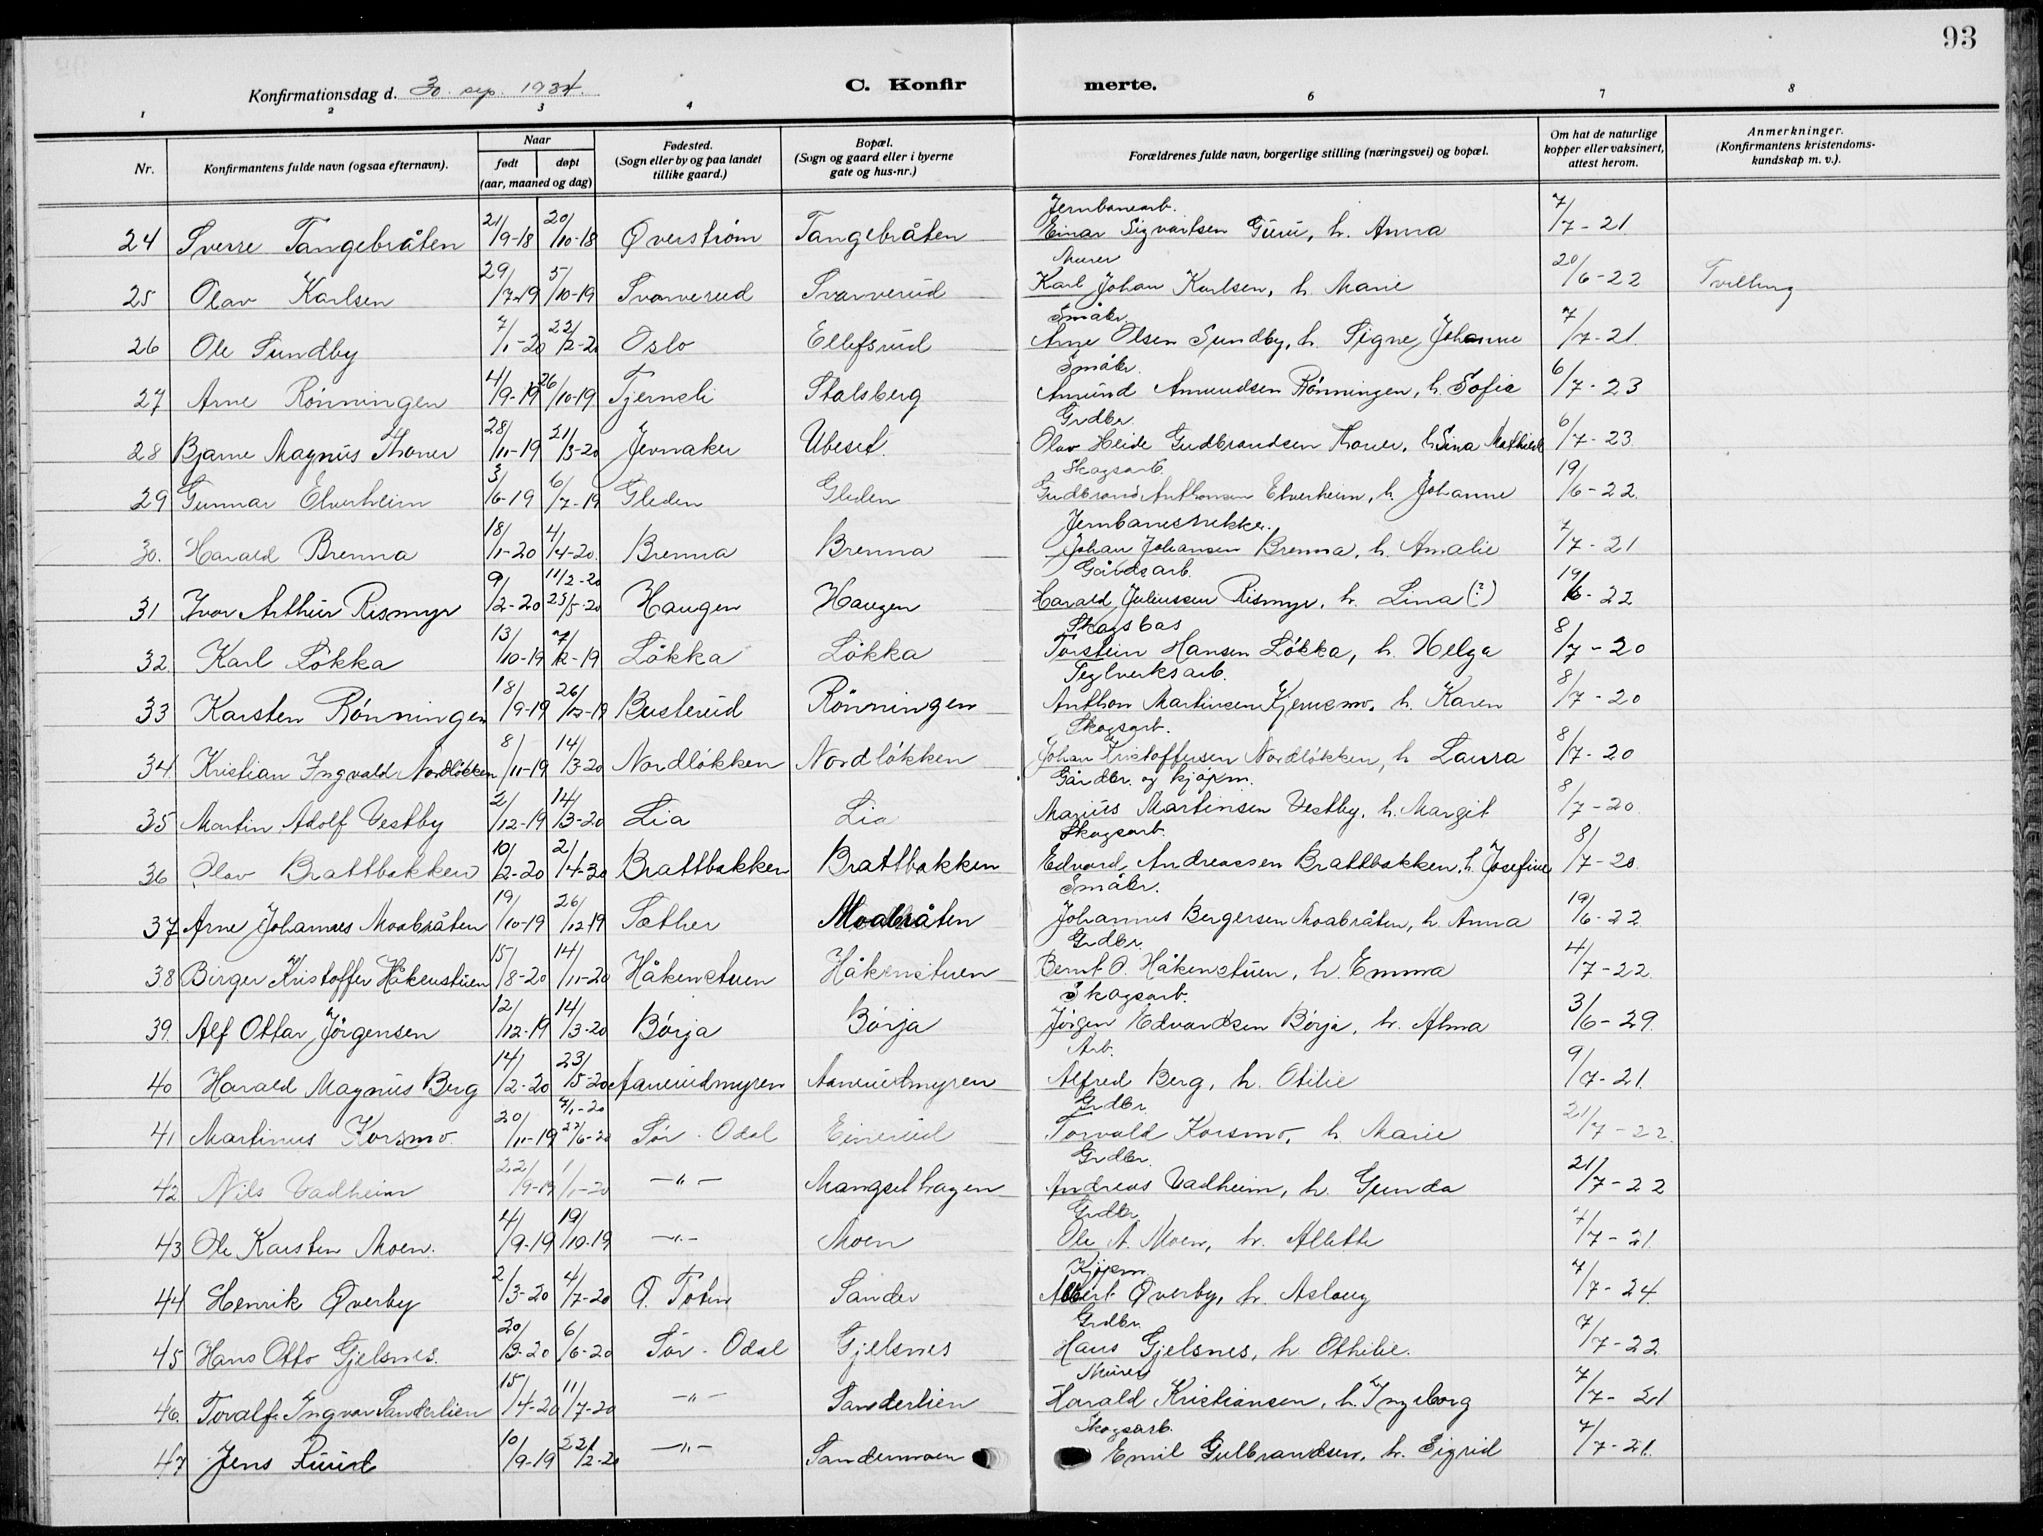 93
Konfirmationsdag d. 30. sep. 1934. C. Konfirmerte.
1 2 3 4 6 7 8
Nr. Konfirmantens fulde navn (ogsaa efternavn). Naar født døpt (aar, maaned og dag) Fødested. (Sogn eller by og paa landet tillike gaard.) Bopæl. (Sogn og gaard eller i byerne gate og hus-nr.) Forældrenes fulde navn, borgerlige stilling (næringsvei) og bopæl. Om hat de naturlige kopper eller vaksinert, attest herom. Anmerkninger. (Konfirmantens kristendoms-kundskap m. v.).
Jernbanearb.
24 Sverre Tangebråten 21/9-18 20/10-18 Øverstrøm Tangebråten Einar Sigvartsen Guru, h. Anna 7/7-21
Murer
25 Olav Karlsen 29/7-19 5/10-19 Svarverud Svarverud Karl Johan Karlsen, h. Marie 20/6-22 Tvilling
Småbr.
26 Ole Sundby 7/1-20 22/2-20 Oslo Ellefsrud Arne Olsen Sundby, h. Signe Johanne 7/7-21
Småbr.
27 Arne Rønningen 4/9-19 26/10-19 Tjernsli Stalsberg Amund Amundsen Rønningen, h. Sofie 6/7-23
Grdbr.
28 Bjarne Magnus Thoner 28/11-19 21/3-20 Jevnaker Ubeset. Olav Heide Gudbrandsen Thoner, h. Lina Mathilde 6/7-23
Skogsarb.
29 Gunnar Elverheim 3/6-19 6/7-19 Gleden Gleden Gudbrand Anthonsen Elverheim, h. Johanne 19/6-22.
Jernbanestrekker.
30. Harald Brenna 18/1-20 4/4-20. Brenna Brenna Johan Johansen Brenna, h. Amalie 7/7-21
Gårdsarb.
31 Ivar Arthur Rismyr 9/2-20 11/2-20 25/5-20 Haugen Haugen Harald Juliussen Rismyr, h. Lina (?) 19/6-22
Skogsbas
32 Karl Løkka 13/10-19 7/12-19 Løkka Løkka Torstein Hansen Løkka, h. Helga 8/7-20
Teglverksarb.
33 Karsten Rønningen 18/9-19 26/12-19 Busterud Rønningen Anthon Martinsen Kjernsmo, h. Karen 8/7-20
Skogsarb.
34 Kristian Ingvald Nordløkken 8/11-19 14/3-20 Nordløkken Nordløkken Johan Kristoffersen Nordløkken, h. Laura 8/7-20
Gårdbr. og kjøpm.
35 Martin Adolf Vestby 2/12-19 14/3-20 Lia Lia Marius Martinsen Vestby, h. Margit 8/7-20
Skogsarb.
36 Olav Brattbakken 10/2-20 2/4-20 Brattbakken Brattbakken Edvard Andreassen Brattbakken, h. Josefine 8/7-20
Småbr.
37 Arne Johannes Moabråten 19/10-19 26/12-19 Sæther Moabråten Johannes Bergersen Moabråten, h. Anna 19/6-22
Grdbr.
38 Birger Kristoffer Håkenstuen 15/8-20 14/11-20 Håkenstuen Håkenstuen Bernt O. Håkenstuen, h. Emma 4/7-22.
Skogsarb.
39. Alf Ottar Jørgensen 12/12-19 14/3-20 Børja Børja Jørgen Edvardsen Børja, h. Alma 3/6-29.
Arb.
40 Harald Magnus Berg 14/2-20 23/5-20 Aanerudmyren Aanerudmyren Alfred Berg, h. Otilie 9/7-21.
Grdbr.
41 Martinus Korsmo. 20/11-19 4/1-20 27/6-20 Sør-Odal Einerud Torvald Korsmo, h. Marie 21/7-22.
Grdbr.
42 Nils Vadheim 22/9-19 1/1-20 —"— Mangset hagen Andreas Vadheim, h. Gunda 21/7-22
Grdbr.
43 Ole Karsten Moen. 4/9-19 19/10-19 —"— Moen Ole A. Moen, h. Allette 7/7-21.
Kjøpm.
44 Henrik Øverby 2/3-20 4/7-20 Ø. Toten Sander Albert Øverby, h. Aslaug 7/7-24.
Grdbr.
45 Hans Otto Gjelsnes. 20/3-20 6/6-20 Sør-Odal Gjelsnes Hans Gjelsnes, h. Othilie. 7/7-22
Murer
46. Toralf Ingvar Sanderlien 15/4-20 11/7-20 —"— Sanderlien Harald Kristiansen, h. Ingeborg 7/7-21
Skogsarb.
47 Jens Ruud 10/9-19 22/2-20 —"— Sandermoen Emil Gulbrandsen, h. Sigrid 7/7-21.